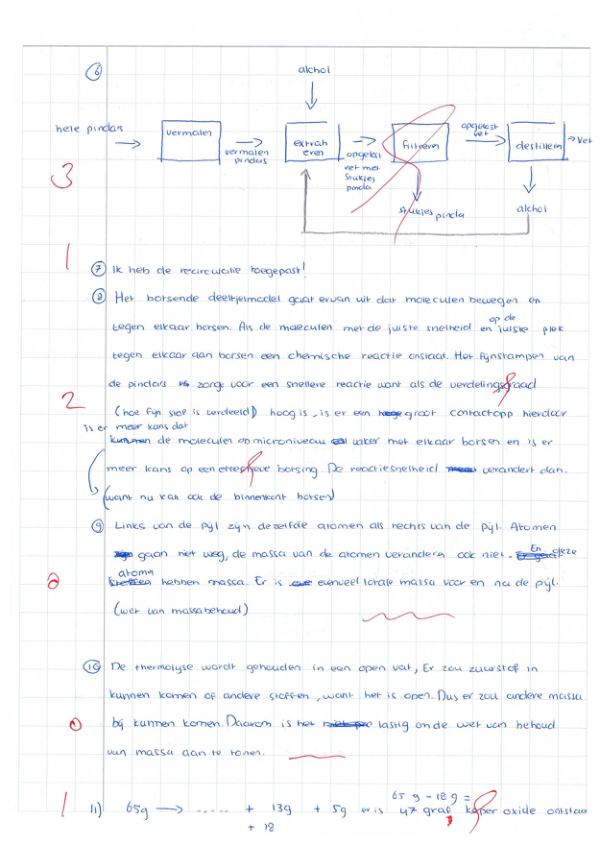 6
alchol
hele pindas
vermalen
vermalen pindas
extraheren
opgelost vet met stukjes pinda
filtreren
opgelost vet
destilleren
vet
stukjes pinda
alchol
3
1
7 Ik heb de recirculatie toegepast!
8 Het botsende deeltjesmodel gaat ervan uit dat moleculen bewegen en
tegen elkaar botsen. Als de moleculen met de juiste snelheid en op de juiste plek
tegen elkaar aan botsen een chemische reactie ontstaat. Het fijnstampen van
de pinda's zorgt voor een snellere reactie want als de verdelingsgraad
2
(hoe fijn stof is verdeeld) hoog is, is er een groot contactopp hierdoor
is er meer kans dat
de moleculen op microniveau vaker met elkaar botsen en is er
meer kans op een effectieve botsing. De reactiesnelheid verandert dan.
(want nu kan ook de binnenkant botsen)
9 Links van de pijl zijn dezelfde atomen als rechts van de pijl. Atomen
gaan niet weg, de massa van de atomen veranderen ook niet. En deze
atomen hebben massa. Er is evenveel totale massa voor en na de pijl.
2
(wet van massabehoud)
10 De thermolyse wordt gehouden in een open vat, Er zou zuurstof in
kunnen komen of andere stoffen, want het is open. Dus er zou andere massa
bij kunnen komen. Daarom is het lastig om de wet van behoud
van massa aan te tonen.
65 g - 18 g =
1
11) 65g → ...... + 13g + 5g er is 47 gram koper oxide ontstaan
+ 18